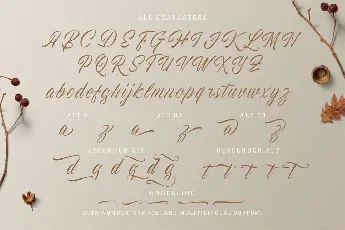 ALL CHARACTERS
ABCDEFGHIJKLMN
PQRSTUVWXYZ
abcdefghijklmnopqrstuvwxyz
ALT 01 ALT 02 ALT 03
a z a z a z
ASCENDER ALT DESCENDER ALT
d d d d d
UNDERLINE
WITH NUMBER, SYMBOL, AND MULTILINGUAL SUPPORT